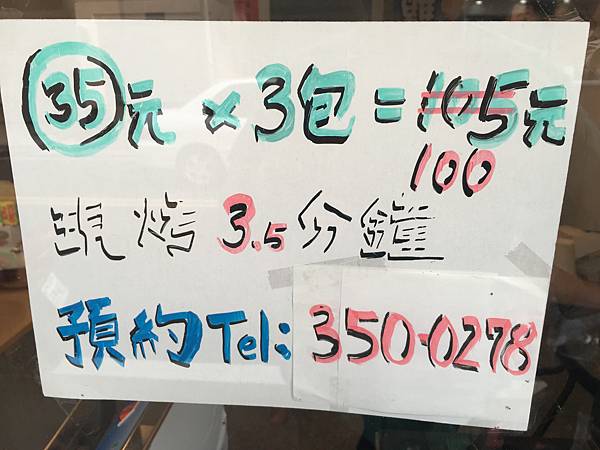 35元 × 3包 = 105元
100
現烤 3.5分鐘
預約Tel: 350-0278